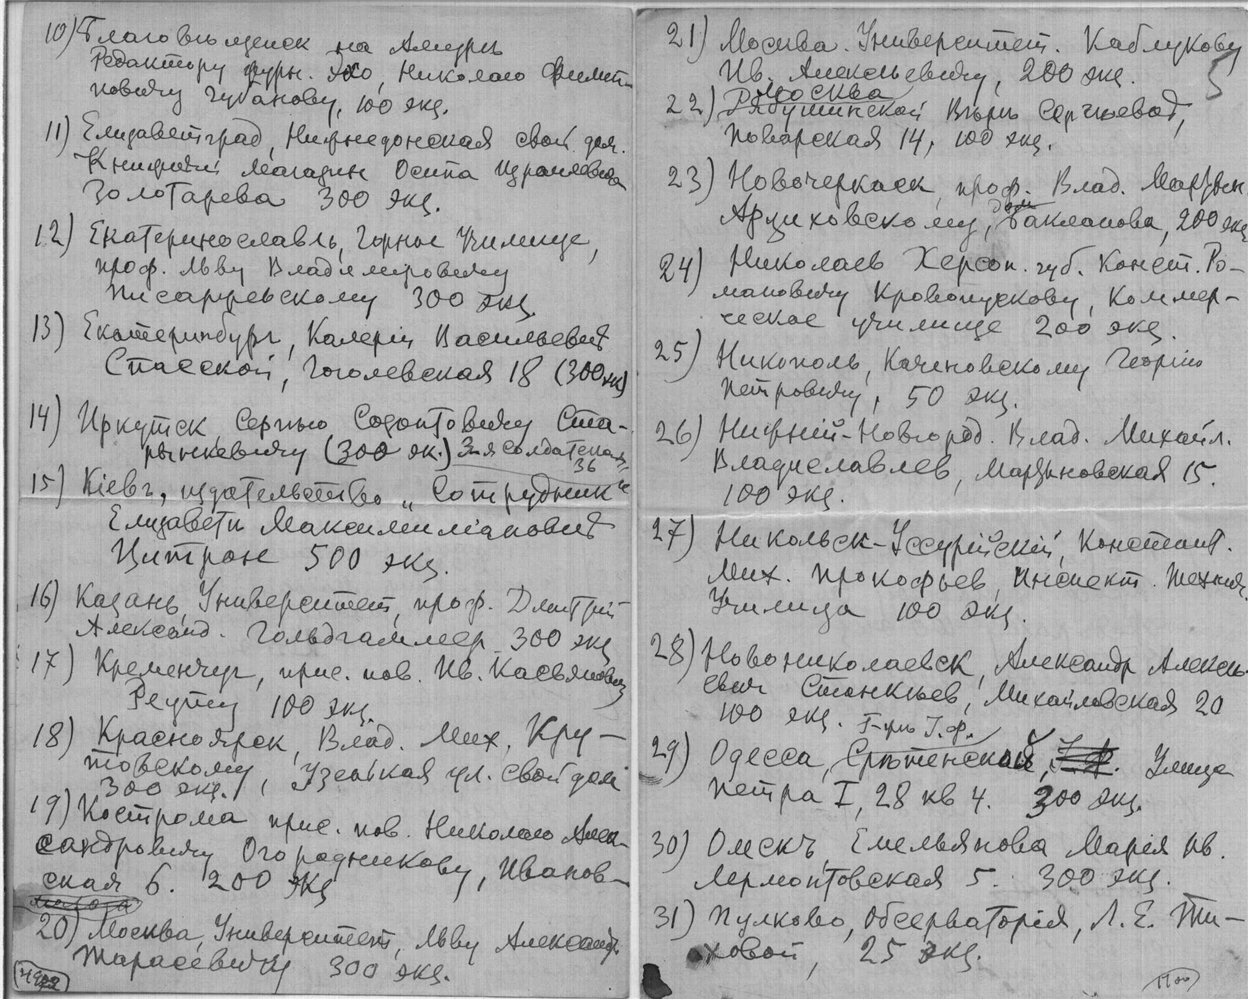 10) Благовѣщенск на Амурѣ
Редактору журн. Эхо, Николаю Филип-
повичу Чубанову, 100 экз.
11) Елизаветград, Нижнедонская свой дом.
Книжный Магазин Осипа Израилевича
Золотарева 300 экз.
12) Екатеринославль, Горное Училище,
проф. Льву Владимировичу
Писаржевскому 300 экз.
13) Екатеринбург, Калеріи Васильевнѣ
Спасской, Гоголевская 18 (300 экз)
14) Иркутск Сергѣю Созонтовичу Ста-
рынкевичу (300 эк.) 3-я Солдатская,
36
15) Кіевъ, издательство „Сотрудник“
Елизаветѣ Максимиліановнѣ
Цитрон 500 экз.
16) Казань, Университет, проф. Дмитрій
Александ. Гольдгаммер 300 экз
17) Кременчуг, прис. пов. Ив. Касьянович
Реутту 100 экз.
18) Красноярск, Влад. Мих. Кру-
товскому, Узенькая ул. свой дом
300 экз.
19) Кострома прис. пов. Николаю Алек-
сандровичу Огородникову, Иванов-
ская 6. 200 экз
20) Москва, Университет, Льву Александр.
Тарасевичу 300 экз.
21) Москва. Университет. Каблукову
Ив. Алексѣевичу, 200 экз.
Москва
22) Рябушинской Вѣрѣ Сергѣевнѣ,
Поварская 14, 100 экз.
23) Новочеркаск, проф. Влад. Март.
Арциховскому, дом Бакланова, 200 экз
24) Николаев Херсон. губ. Конст. Ро-
мановичу Кровопускову, Коммер-
ческое училище 200 экз.
25) Никополь, Каченовскому Георгію
Петровичу, 50 экз.
26) Нижній-Новгород. Влад. Михайл.
Владиславлев, Мартыновская 15.
100 экз.
27) Никольск-Уссурійскій, Констант.
Мих. Прокофьев, Инспект. Технич.
Училища 100 экз.
28) Новониколаевск, Александр Алексѣ-
евич Станкѣев, Михайловская 20
100 экз.
Г-жѣ Г. Ф.
29) Одесса, Срѣтенской, Улица
Петра I, 28 кв 4. 300 экз.
30) Омскъ, Емельянова Марія Ив.
Лермонтовская 5. 300 экз.
31) Пулково, Обсерваторія, Л. Е. Ти-
ховой, 25 экз.